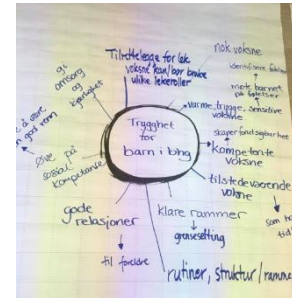 Trygghet
for
barn i bhg
Tilrettelegge for lek
voksne kan/bør bruke
ulike lekeroller
nok voksne
identifisere følelser
møte barnet
på følelser
varme, trygge, sensitive
voksne
skaper forutsigbarhet
kompetente
voksne
tilstedeværende
voksne
som h
tid
klare rammer
grensesetting
rutiner, struktur/ramme
gode
relasjoner
til foreldre
Øve på
sosial
kompetanse
å være
en god venn
gi
omsorg
og
kjærlighet